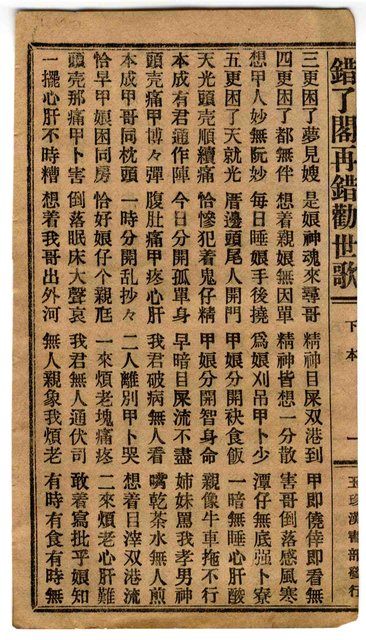 錯了閣再錯勸世歌 下本 一 玉珍漢書部發行
三更困了夢見嫂 是娘神魂來尋哥 精神目屎双港到 甲即僥倖即看無
四更困了都無伴 想着親娘無因單 精神皆想一分散 害哥倒落感風寒
想甲人妙無阮妙 每日睡娘手後撓 爲娘刈吊甲卜少 潭仔無底强卜寮
五更困了天就光 厝邊頭尾人開門 甲娘分開袂食飯 一暗無睡心肝酸
天光頭壳順續痛 恰慘犯着鬼仔精 甲娘分開智身命 親像牛車拖不行
本成有君通作陣 今日分開孤單身 早暗目屎流不盡 姉妹罵我孝男神
頭壳痛甲博々彈 腹肚痛甲疼心肝 我君破病無人看 嘴乾茶水無人煎
本成甲哥同枕頭 一時分開乱抄々 二人離別甲卜哭 想着日滓双港流
恰早甲娘困同房 恰好娘仔个親尪 一來煩老塊痛疼 二來煩老心肝難
頭壳那痛甲卜害 倒落眠床大聲哀 我君無人通伏司 敢着寫批乎娘知
一擺心肝不時糟 想着我哥出外河 無人親象我煩老 有時有食有時無